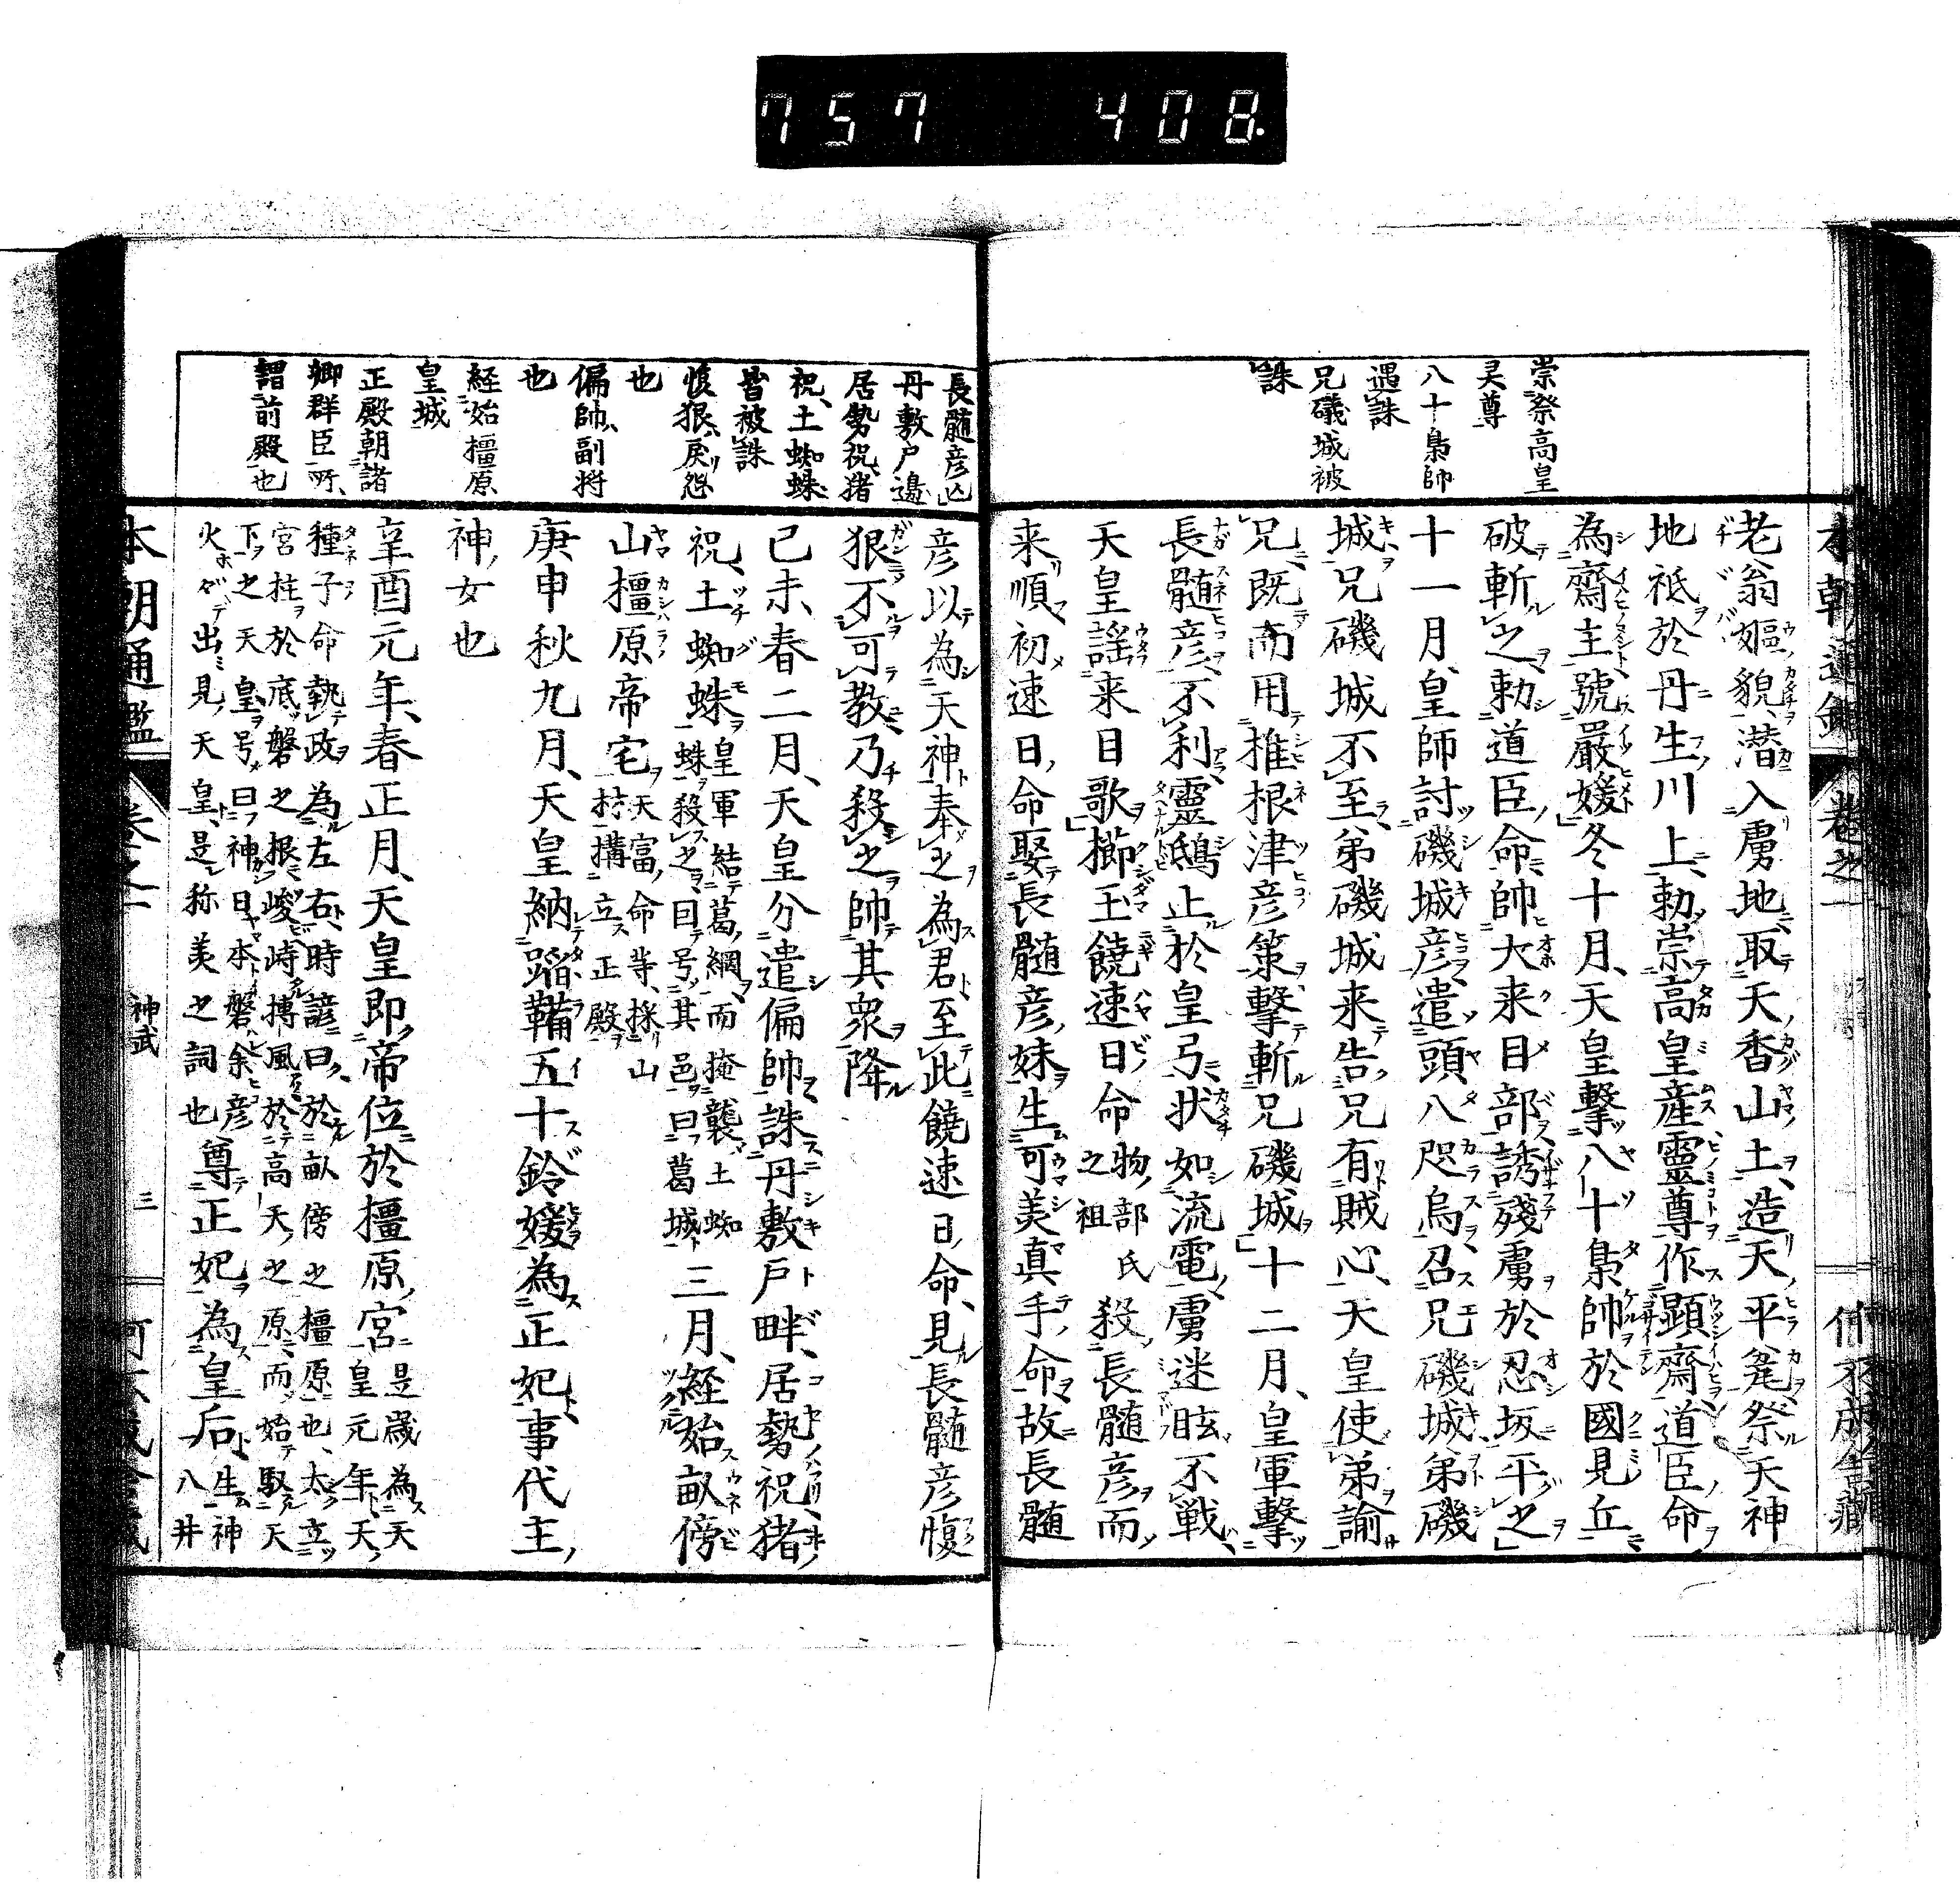 757 408.
崇祭高皇
灵尊
八十梟帥
遇誅
兄礒城被
誅
老翁嫗貌潜入虜地取天香山土造天平瓮祭天神
地祇於丹生川上勅崇高皇産靈尊作顕齋道臣命
為齋主號嚴媛冬十月天皇擊八十梟帥於國見丘
破斬之勅道臣命帥大来目部誘殘虜於忍坂平之
十一月皇師討磯城彦遣頭八咫烏召兄磯城弟磯
城兄磯城不至弟磯城来告兄有賊心天皇使弟諭
兄既而用推根津彦策擊斬兄磯城十二月皇軍擊
長髄彦不利靈鵄止於皇弓状如流電虜迷眩不戦
天皇謡来目歌櫛玉饒速日命物部氏之祖殺長髄彦而
来順初速日命娶長髄彦妹生可美真手命故長髄
長髄彦込
丹敷戸邊
居勢祝猪
祝土蜘蛛
皆被誅
愎狠戻怨
也
偏帥副将
也
経始橿原
皇城
正殿朝諸
卿群臣所
謂前殿也
彦以為天神奉之為君至此饒速日命見長髄彦愎
狠不可教乃殺之帥其衆降
己未春二月天皇分遣偏帥誅丹敷戸畔居勢祝猪
祝土蜘蛛皇軍結葛網而掩襲土蜘
蛛殺之因号其邑曰葛城三月経始畝傍
山橿原帝宅天富命等採山
材構立正殿
庚申秋九月天皇納蹈鞴五十鈴媛為正妃事代主
神女也
辛酉元年春正月天皇即帝位於橿原宮是歳為天
皇元年天
種子命執政為左右時諺曰於畝傍之橿原也太立
宮柱於底磐之根峻峙搏風於高天之原而始馭天
下之天皇号曰神日本磐余彦
火火出見天皇是称美之詞也尊正妃為皇后生神
八井
本朝通鑑 卷之一 神武 三